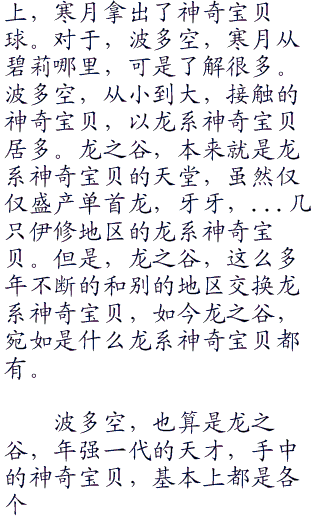 上，寒月拿出了神奇宝贝
球。对于，波多空，寒月从
碧莉哪里，可是了解很多。
波多空，从小到大，接触的
神奇宝贝，以龙系神奇宝贝
居多。龙之谷，本来就是龙
系神奇宝贝的天堂，虽然仅
仅盛产单首龙，牙牙，...几
只伊修地区的龙系神奇宝
贝。但是，龙之谷，这么多
年不断的和别的地区交换龙
系神奇宝贝，如今龙之谷，
宛如是什么龙系神奇宝贝都
有。
波多空，也算是龙之
谷，年强一代的天才，手中
的神奇宝贝，基本上都是各
个